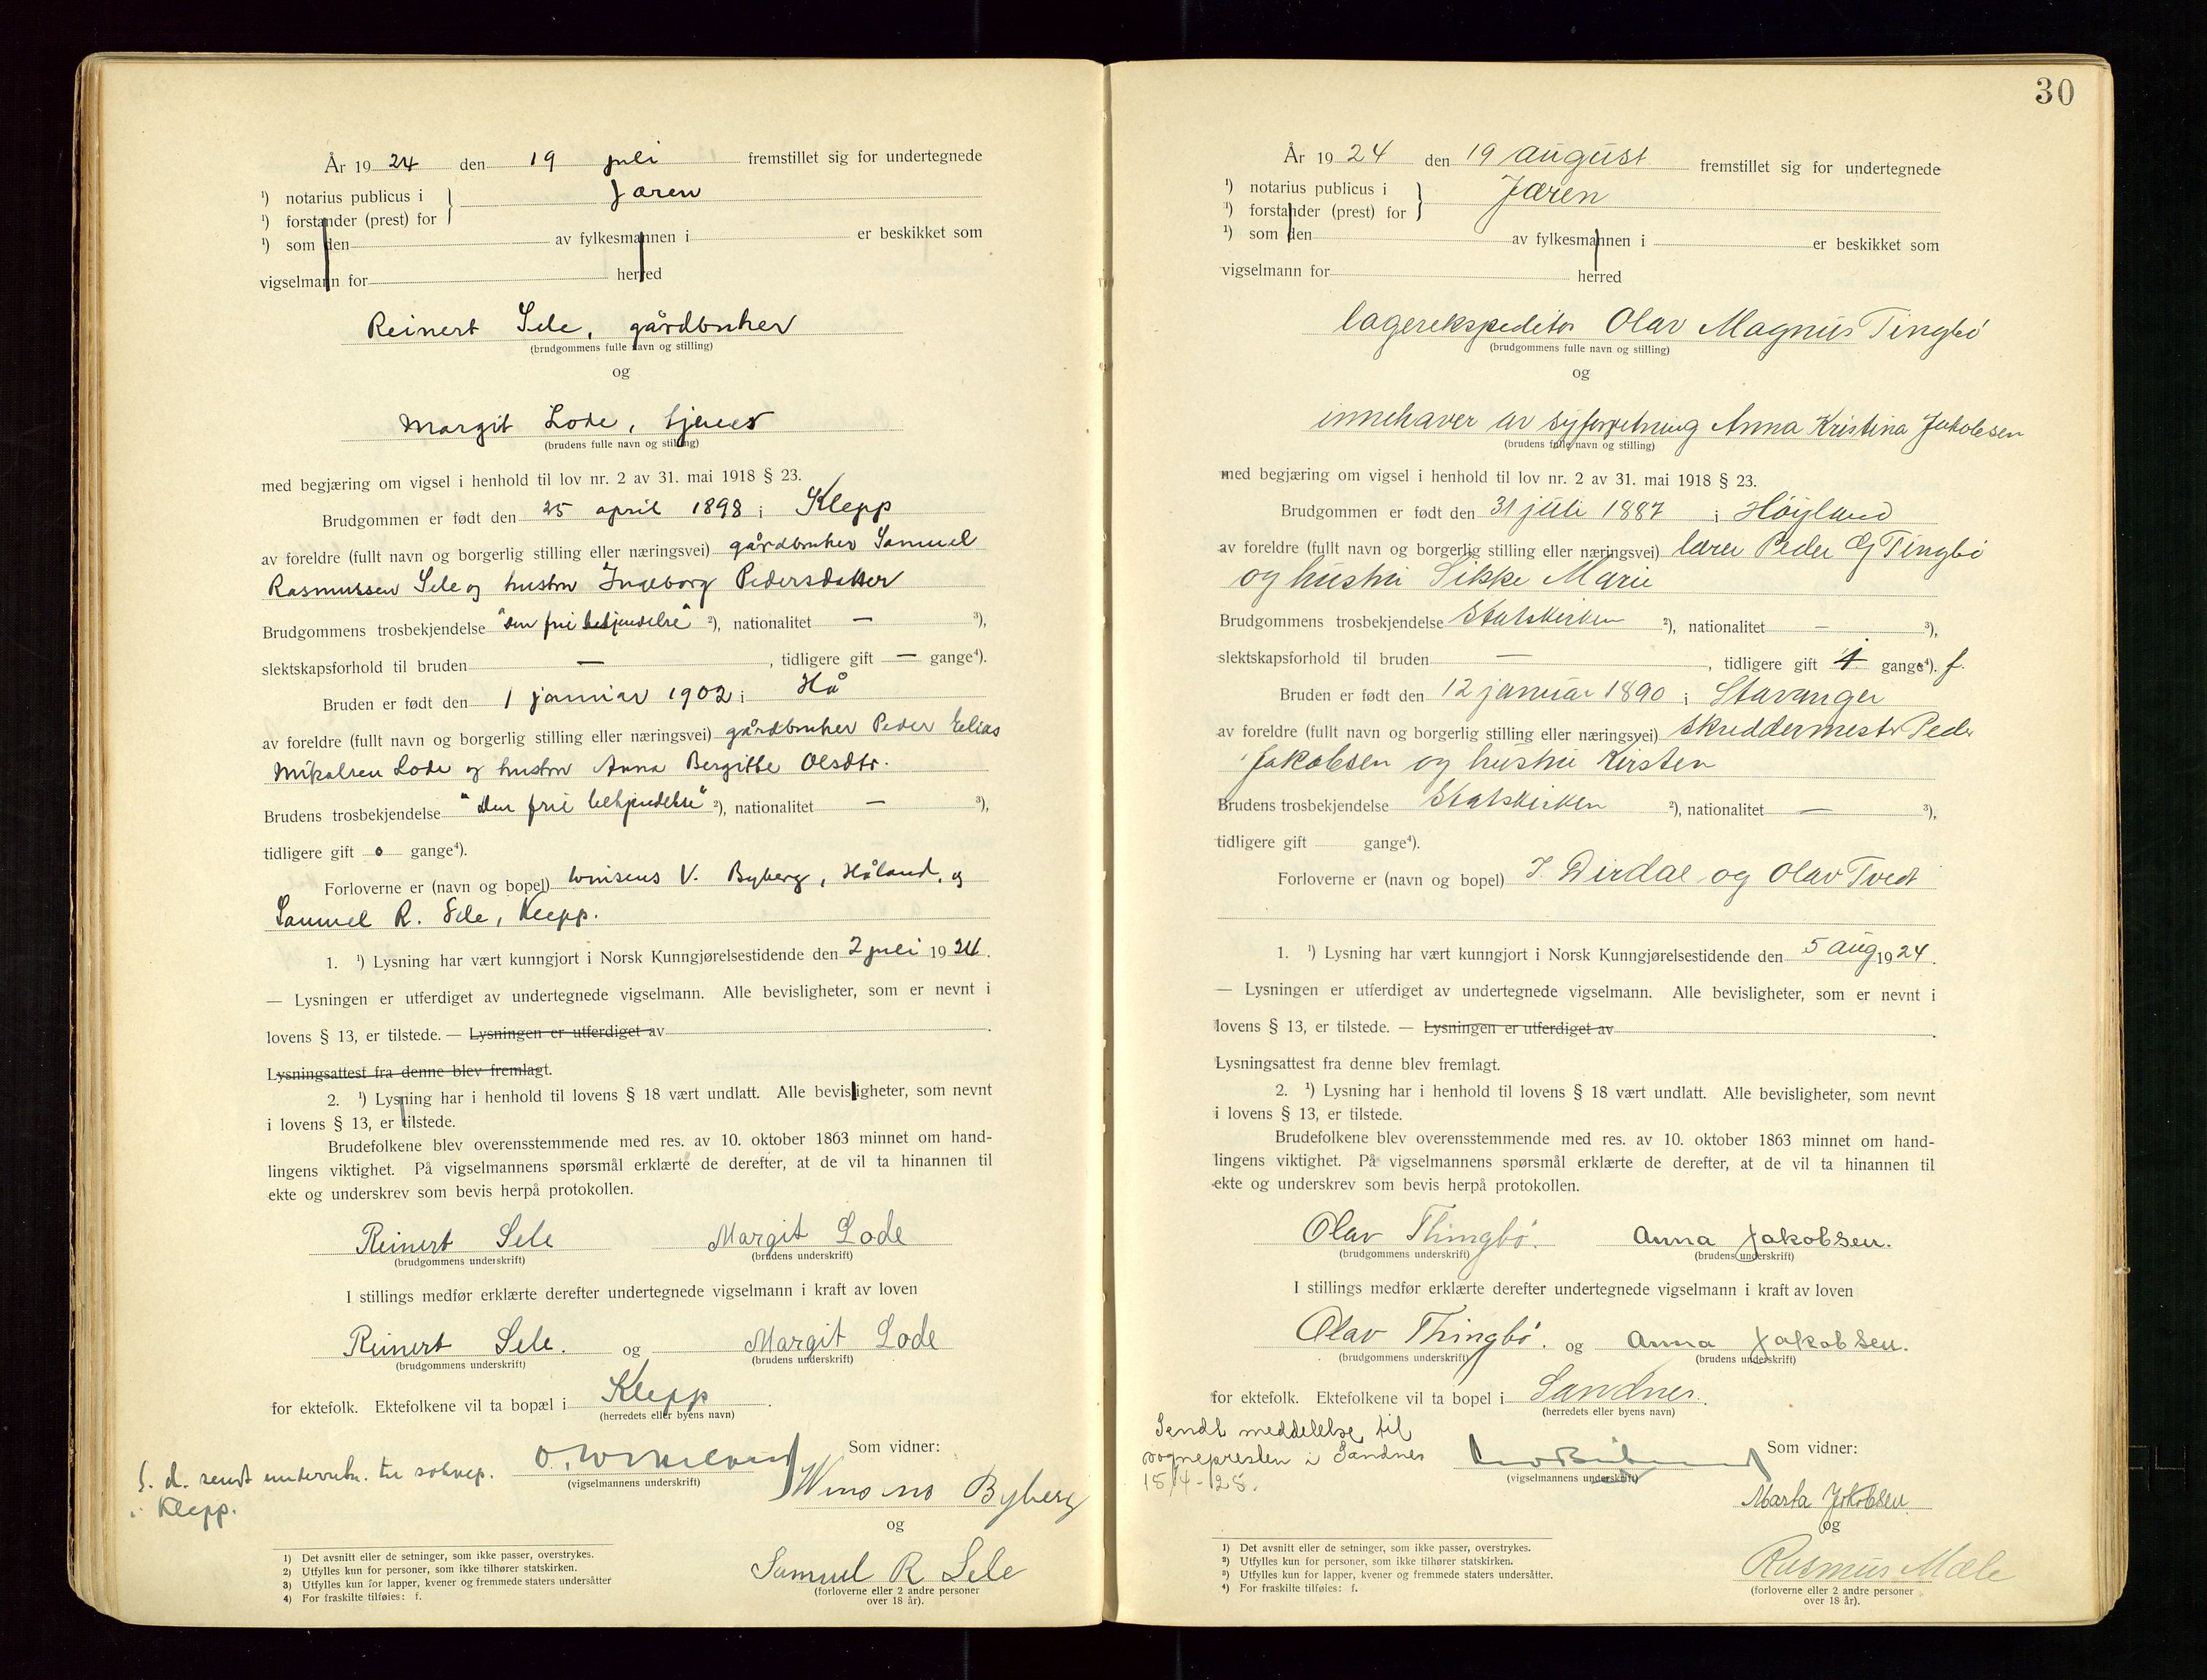 År 1924 den 19 juli fremstillet sig for undertegnede
¹) notarius publicus i } Jæren
¹) forstander (prest) for
¹) som den av fylkesmannen i er beskikket som
vigselmann for herred
Reinert Sele, gårdbruker
(brudgommens fulle navn og stilling)
og
Margit Lode,
(brudens fulle navn og stilling)
med begjæring om vigsel i henhold til lov nr. 2 av 31. mai 1918 § 23.
Brudgommen er født den 25 april 1898 i Klepp
av foreldre (fullt navn og borgerlig stilling eller næringsvei) gårdbruker Samuel
Rasmussen Sele og hustru Ingeborg Pedersdatter
Brudgommens trosbekjendelse "Den frie bekjendelse" ²), nationalitet — ³),
slektskapsforhold til bruden — , tidligere gift — gange⁴).
Bruden er født den 1 januar 1902 i Hå
av foreldre (fullt navn og borgerlig stilling eller næringsvei) gårdbruker Peder Elias
Mikalsen Lode og hustru Anna Bergitte Olsdtr.
Brudens trosbekjendelse "Den frie bekjendelse" ²), nationalitet — ³),
tidligere gift 0 gange⁴).
Forloverne er (navn og bopel) V. Byberg, Håland, og
Samuel R. Sele, Klepp.
1. ¹) Lysning har vært kunngjort i Norsk Kunngjørelsestidende den 2 juli 1924.
— Lysningen er utferdiget av undertegnede vigselmann. Alle bevisligheter, som er nevnt i
lovens § 13, er tilstede. — Lysningen er utferdiget av .
Lysningsattest fra denne blev fremlagt.
2. ¹) Lysning har i henhold til lovens § 18 vært undlatt. Alle bevisligheter, som nevnt
i lovens § 13, er tilstede.
Brudefolkene blev overensstemmende med res. av 10. oktober 1863 minnet om hand-
lingens viktighet. På vigselmannens spørsmål erklærte de derefter, at de vil ta hinannen til
ekte og underskrev som bevis herpå protokollen.
Reinert Sele Margit Lode
(brudgommens underskrift) (brudens underskrift)
I stillings medfør erklærte derefter undertegnede vigselmann i kraft av loven
Reinert Sele. og Margit Lode
(brudgommens underskrift) (brudens underskrift)
for ektefolk. Ektefolkene vil ta bopæl i Klepp .
(herredets eller byens navn)
S. d. sendt underretn. til soknep.
i Klepp.
(vigselmannens underskrift)
Som vidner:
Byberg
og
Samuel R Sele
(forloverne eller 2 andre personer
over 18 år).
1) Det avsnitt eller de setninger, som ikke passer, overstrykes.
2) Utfylles kun for personer, som ikke tilhører statskirken.
3) Utfylles kun for lapper, kvener og fremmede staters undersåtter
4) For fraskilte tilføies: f.
30
År 1924 den 19 august fremstillet sig for undertegnede
¹) notarius publicus i } Jæren
¹) forstander (prest) for
¹) som den av fylkesmannen i er beskikket som
vigselmann for herred
lagerekspeditør Olav Magnus Tingbø
(brudgommens fulle navn og stilling)
og
innehaver av syforretning Anna Kristina Jakobsen
(brudens fulle navn og stilling)
med begjæring om vigsel i henhold til lov nr. 2 av 31. mai 1918 § 23.
Brudgommen er født den 31 juli 1887 i Høyland
av foreldre (fullt navn og borgerlig stilling eller næringsvei) lærer Peder G Tingbø
og hustru Sikke Marie
Brudgommens trosbekjendelse Statskirken ²), nationalitet — ³),
slektskapsforhold til bruden — , tidligere gift 1 gange⁴). f.
Bruden er født den 12 januar 1890 i Stavanger
av foreldre (fullt navn og borgerlig stilling eller næringsvei) skreddermester Peder
Jakobsen og hustru Kirsten
Brudens trosbekjendelse Statskirken ²), nationalitet — ³),
tidligere gift gange⁴).
Forloverne er (navn og bopel) J. Dirdal og Olav Tvedt
1. ¹) Lysning har vært kunngjort i Norsk Kunngjørelsestidende den 5 aug 1924.
— Lysningen er utferdiget av undertegnede vigselmann. Alle bevisligheter, som er nevnt i
lovens § 13, er tilstede. — Lysningen er utferdiget av .
Lysningsattest fra denne blev fremlagt.
2. ¹) Lysning har i henhold til lovens § 18 vært undlatt. Alle bevisligheter, som nevnt
i lovens § 13, er tilstede.
Brudefolkene blev overensstemmende med res. av 10. oktober 1863 minnet om hand-
lingens viktighet. På vigselmannens spørsmål erklærte de derefter, at de vil ta hinannen til
ekte og underskrev som bevis herpå protokollen.
Olav Thingbø. Anna Jakobsen.
(brudgommens underskrift) (brudens underskrift)
I stillings medfør erklærte derefter undertegnede vigselmann i kraft av loven
Olav Thingbø. og Anna Jakobsen.
(brudgommens underskrift) (brudens underskrift)
for ektefolk. Ektefolkene vil ta bopel i Sandnes.
(herredets eller byens navn)
Sendt meddelelse til
sognepresten i Sandnes
15/4-25.
(vigselmannens underskrift)
Som vidner:
Marta Jakobsen
og
Rasmus Mæle
(forloverne eller 2 andre personer
over 18 år).
1) Det avsnitt eller de setninger, som ikke passer, overstrykes.
2) Utfylles kun for personer, som ikke tilhører statskirken.
3) Utfylles kun for lapper, kvener og fremmede staters undersåtter.
4) For fraskilte tilføies: f.